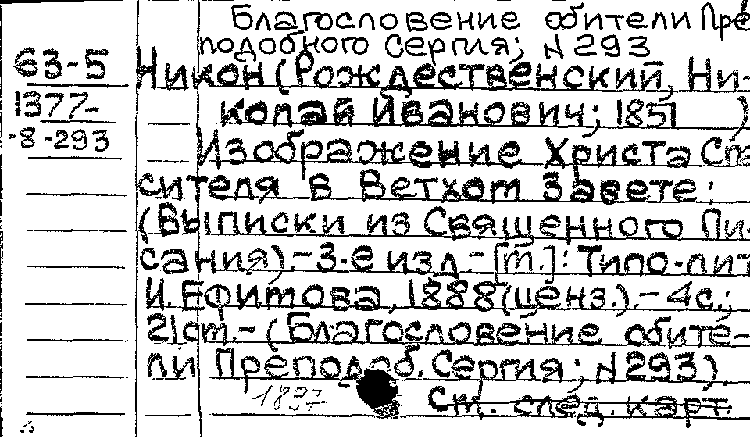 Благословение обители Пре
подобного Сергия; N293
63-5
Никон (Рождественский, Ни-
1377-
колай Иванович; 1851 )
-8-293
Изображение Христа Спа
сителя в Ветхом Завете:
(Выписки из Священного Пи-
сания).-3-е изд.-[М.]: Типо-лит
И. Ефимова, 1888(ценз.).-4с.;
21см.-(Благословение обите-
ли Преподоб. Сергия; N293).
См. след. карт.